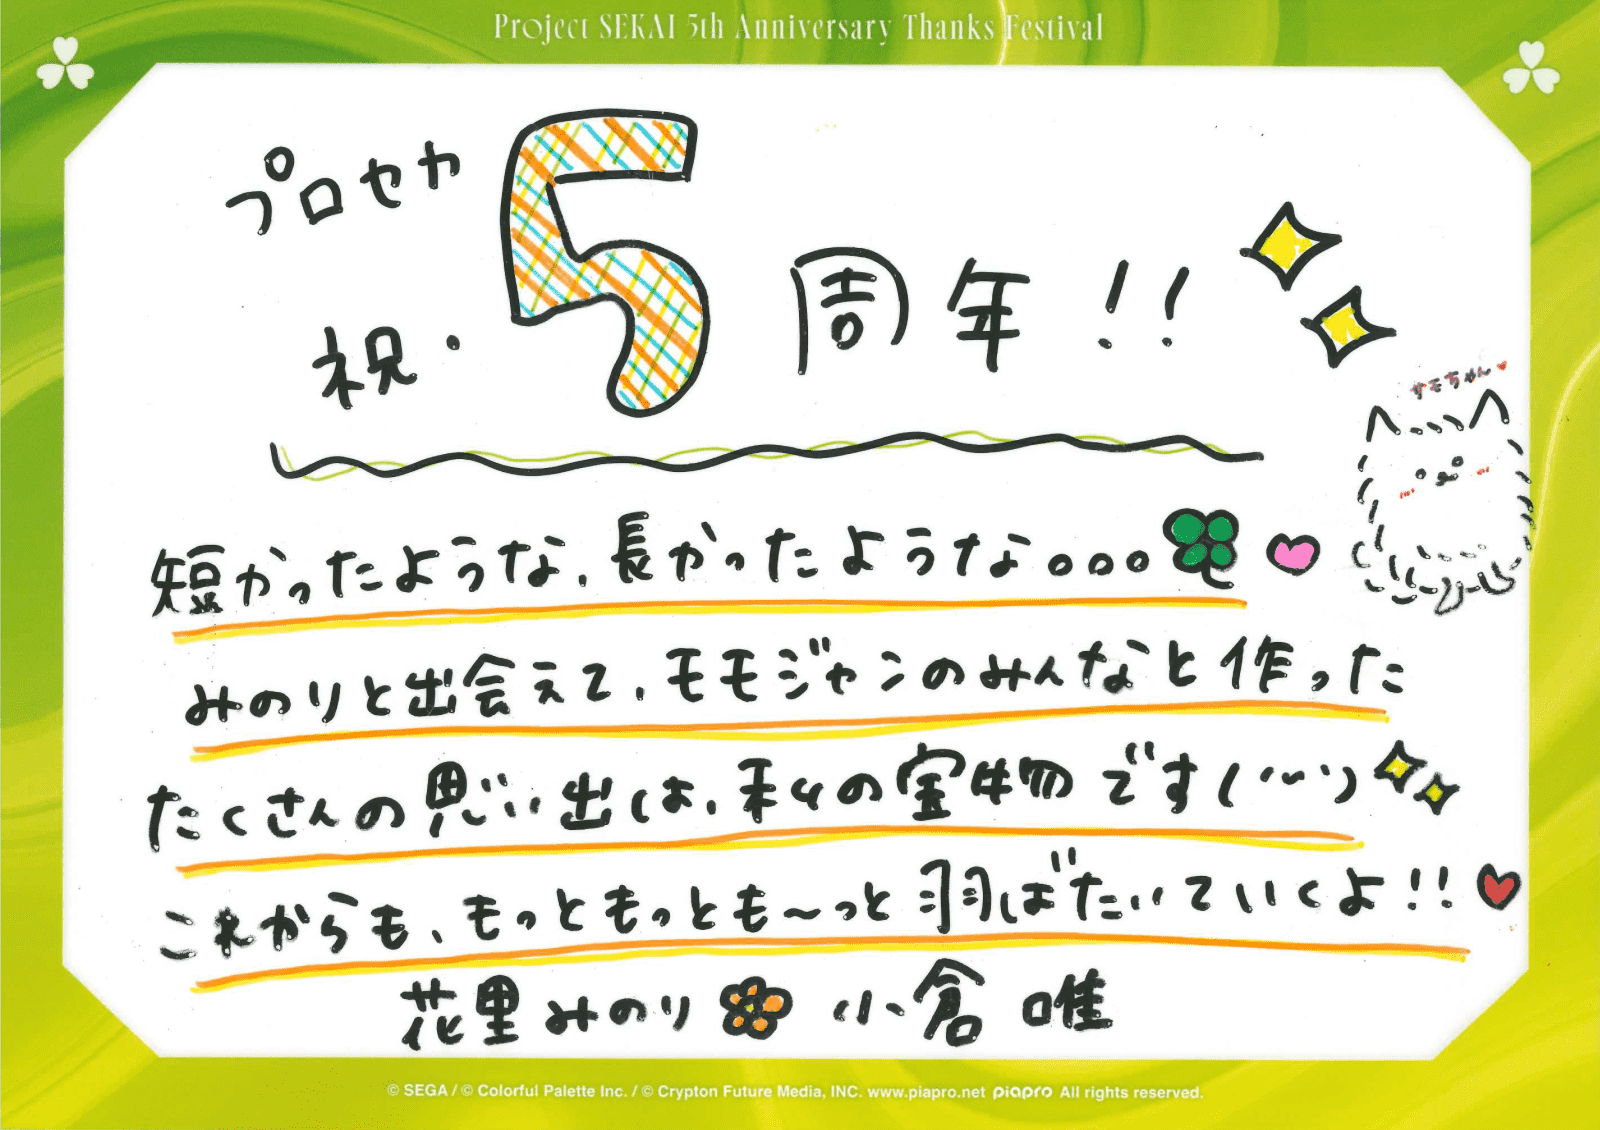 Project SEKAI 5th Anniversary Thanks Festival
プロセカ
祝・5周年!!
サモちゃん♥
短かったような、長かったような。。。
みのりと出会えて、モモジャンのみんなと作った
たくさんの思い出は、私の宝物です(˙ᵕ˙)
これからも、もっともっとも〜っと羽ばたいていくよ!!
花里みのり 小倉 唯
© SEGA / © Colorful Palette Inc. / © Crypton Future Media, INC. www.piapro.net piapro All rights reserved.